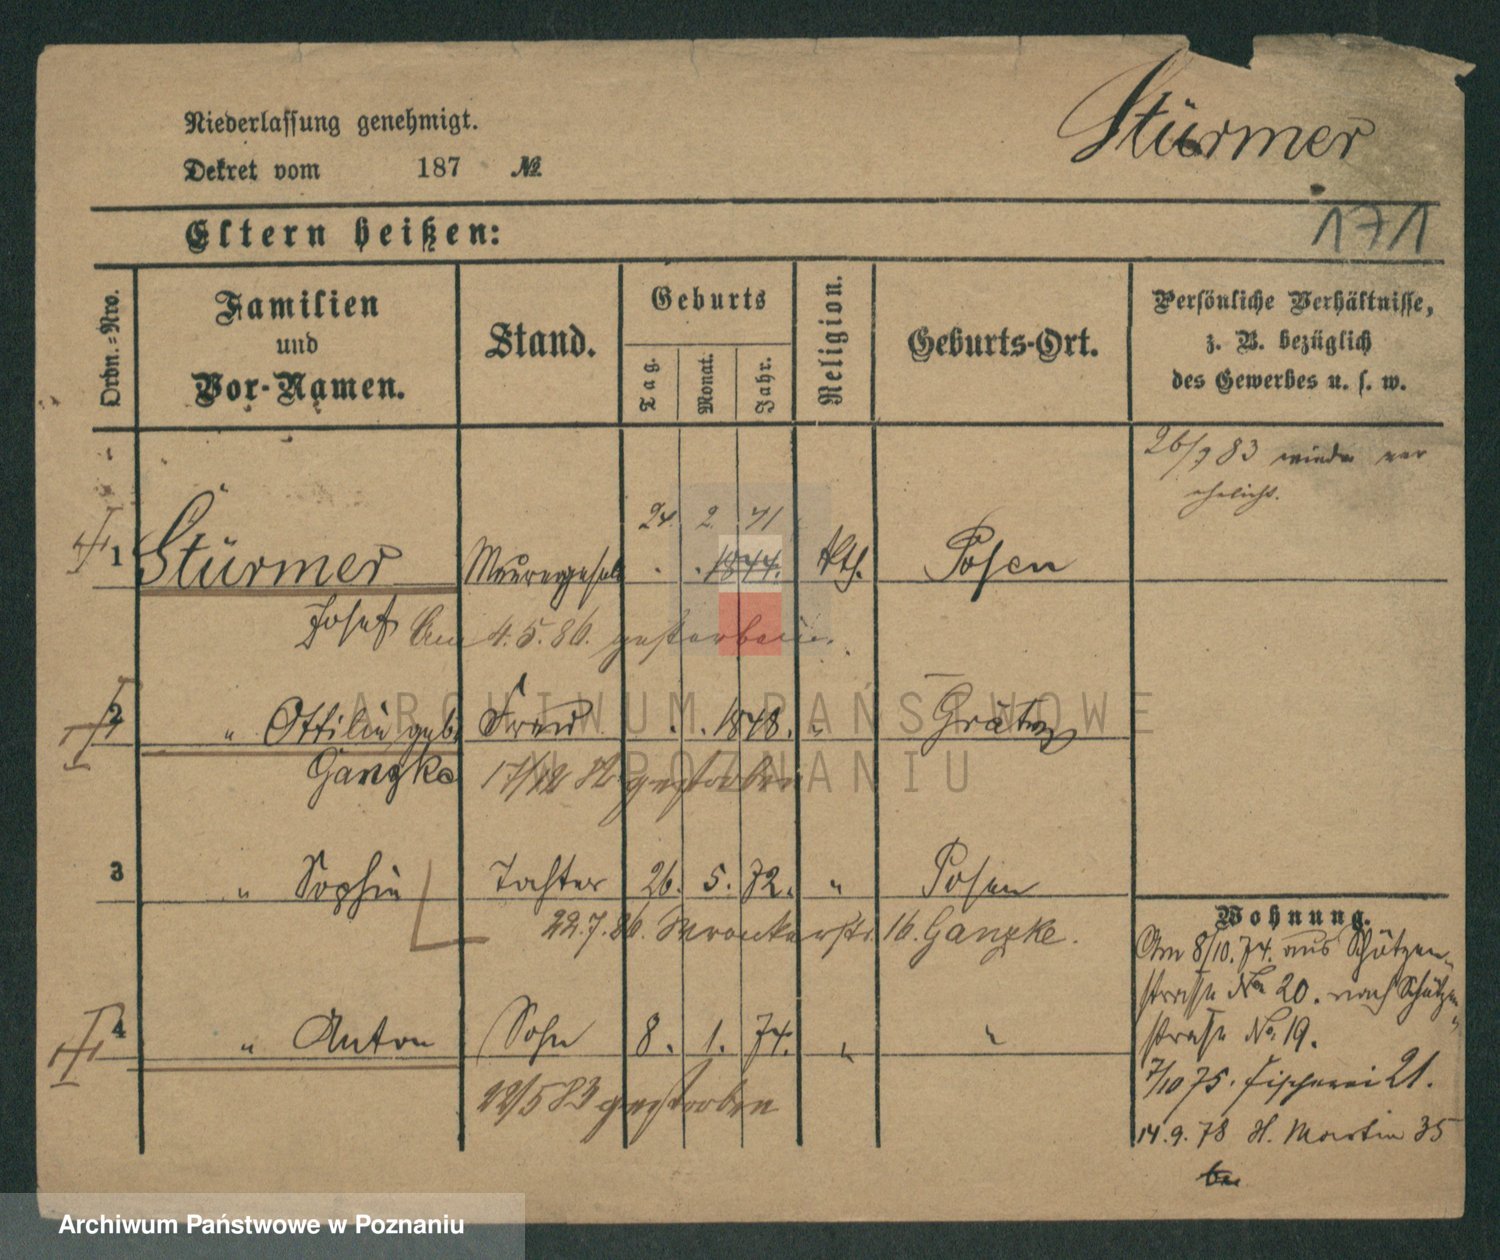 Niederlassung genehmigt.
Stürmer
Dekret vom 187 №
171
Eltern heißen:
Ordn.=Nro.
Familien
und
Vor-Namen.
Stand.
Geburts
Tag.
Monat.
Jahr.
Religion.
Geburts-Ort.
Persönliche Verhältnisse,
z. B. bezüglich
des Gewerbes u. s. w.
26/9 83 wieder ver
ehelicht.
24. 2. 41
1 Stürmer Maurergesell . . 1844. kth. Posen
Josef Am 4.5.86. gestorben.
2 " Ottilie geb. Frau . . 1848. " Grätz
Ganzke 17/12 82 gestorben
3 " Sophie Tochter 26. 5. 72. " Posen
22.7.86. Wronkerstr. 16. Ganzke.
4 " Anton Sohn 8. 1. 74. " "
22/5 83 gestorben
Wohnung.
Am 8/10. 74. aus Schützen-
straße No 20. nach Schützen-
straße No. 19.
7/10 75. Fischerei 21.
14.9.78 St. Martin 35
ARCHIWUM PAŃSTWOWE
W POZNANIU
Archiwum Państwowe w Poznaniu